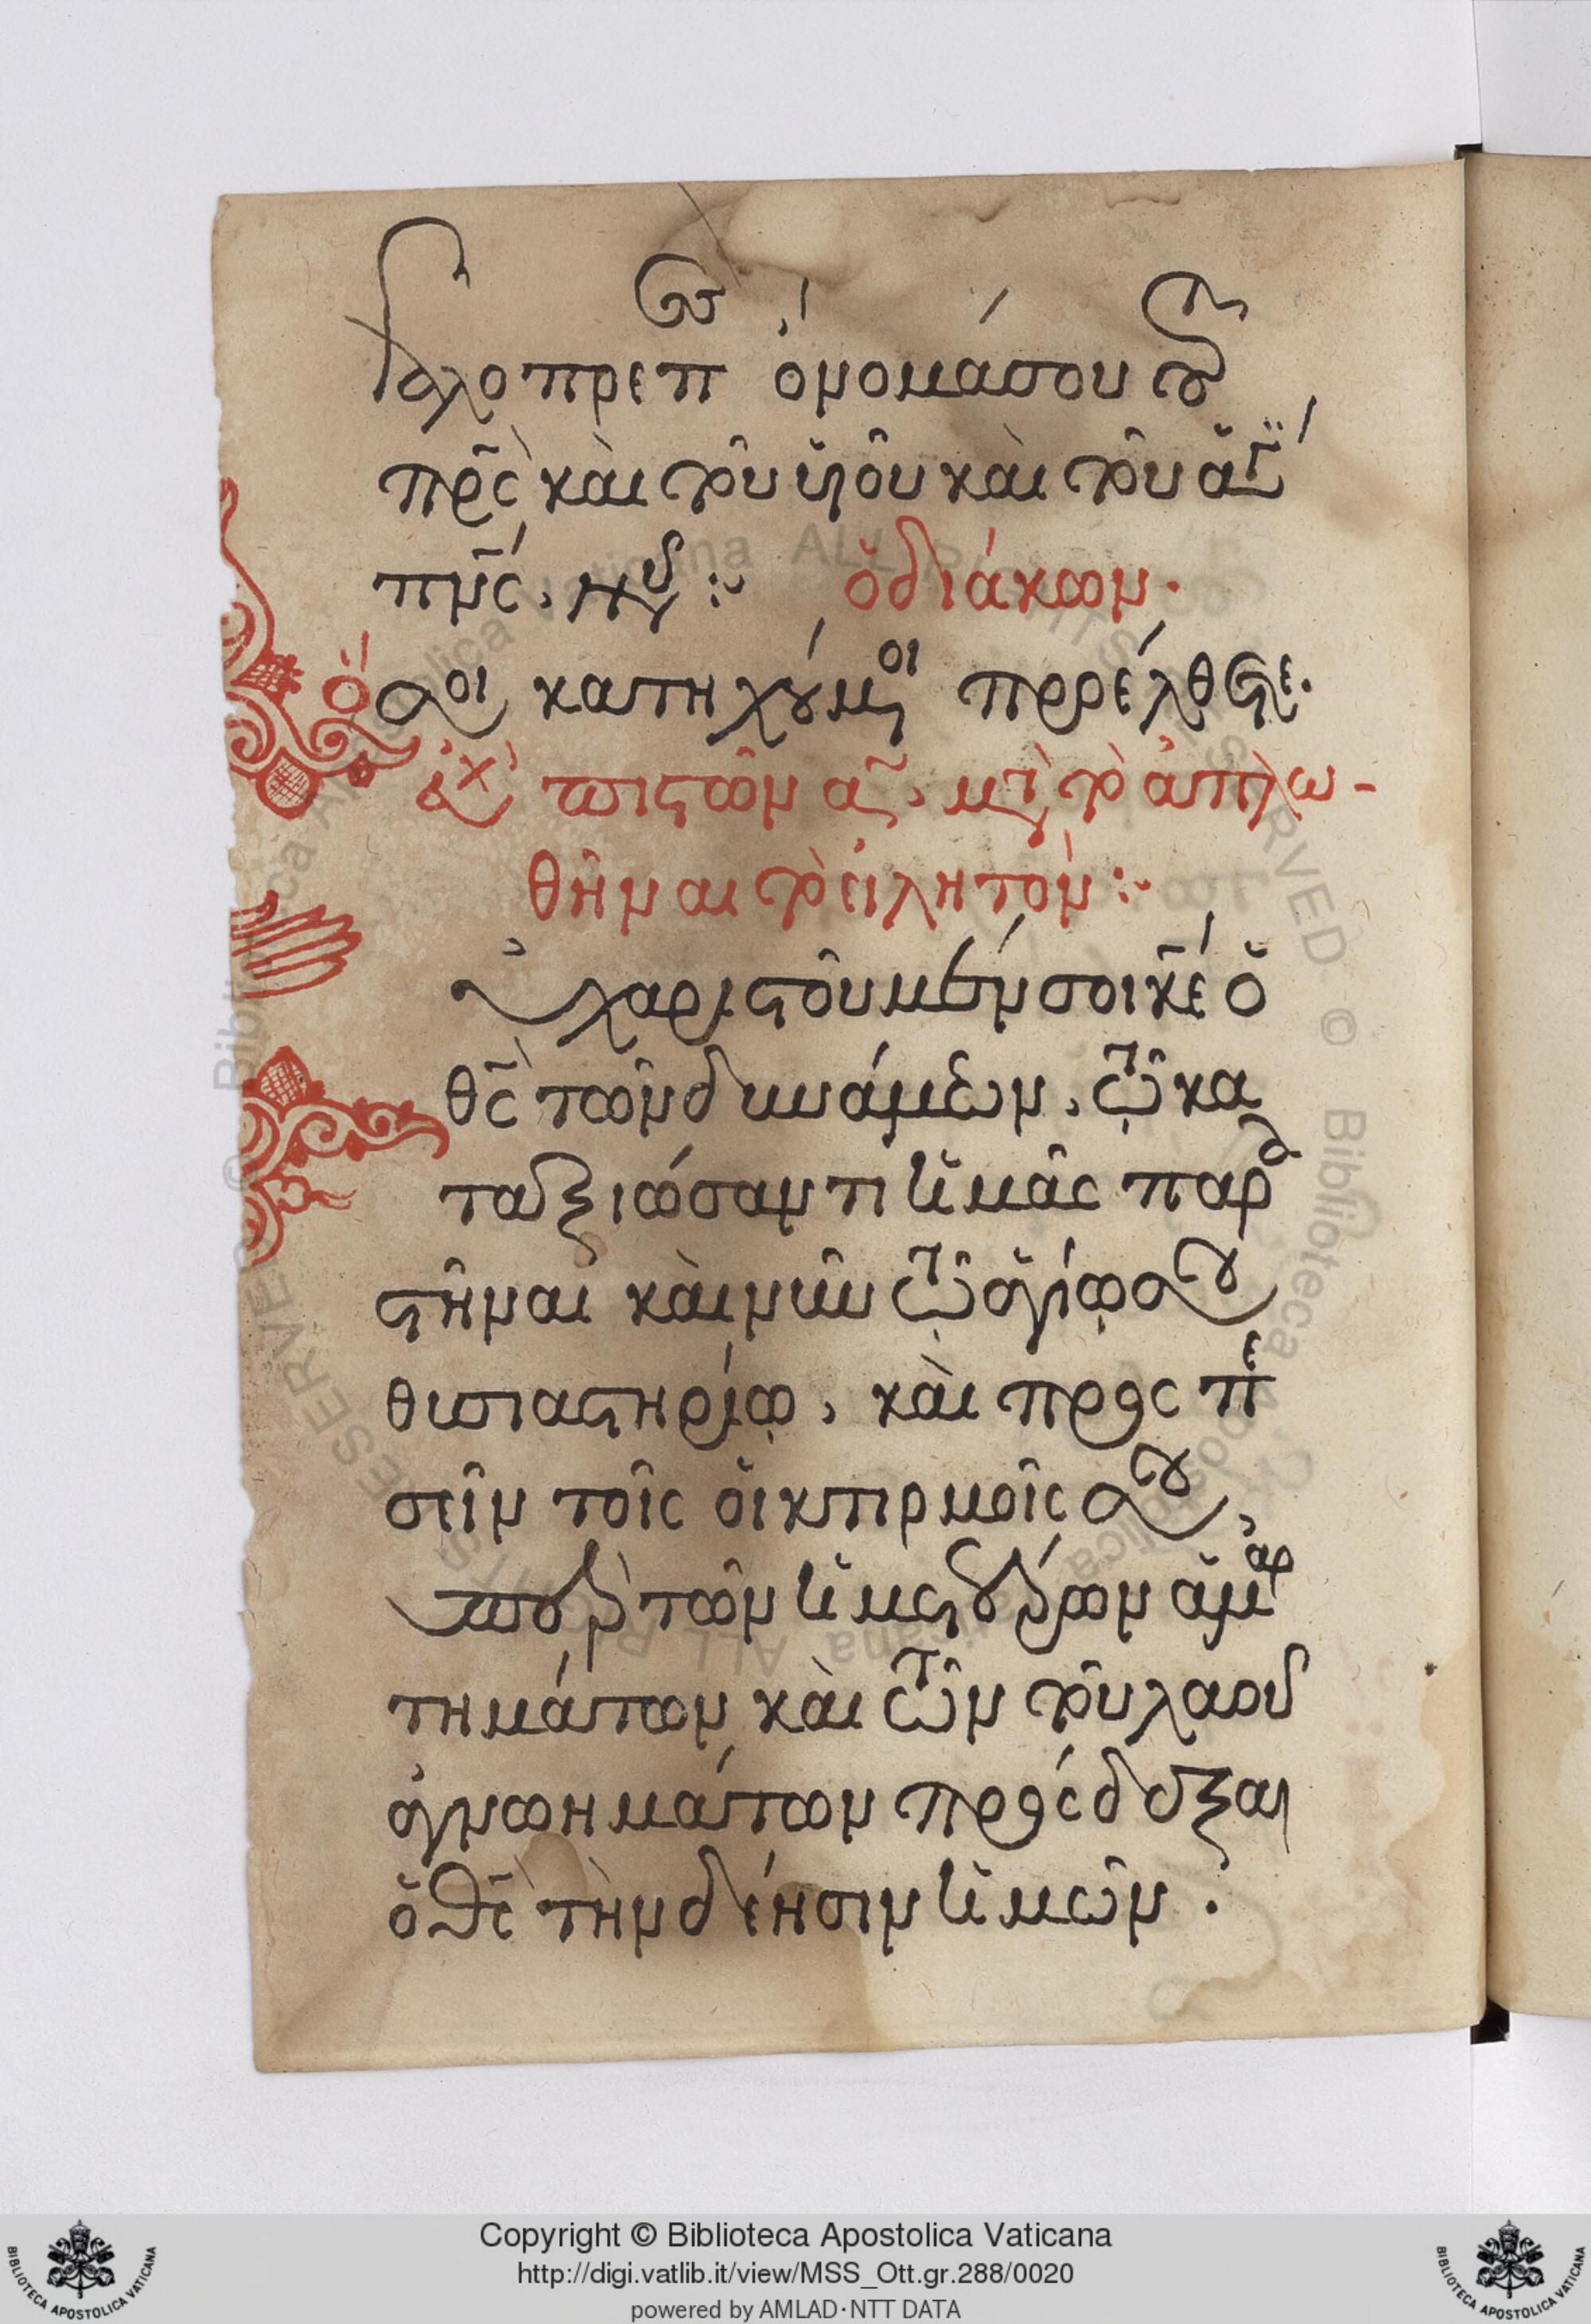 γαλοπρεπὲς ὄνομά σου τοῦ
πρ̅ς̅ καὶ τοῦ υἱοῦ καὶ τοῦ ἁγίου
πν̅ς̅, νῦν : ὁ διάκων.
ὅσοι κατηχούμενοι προέλθετε.
εὐχὴ πιστῶν α, μετὰ τὸ ἁπλω-
θῆναι τὸ εἰλητόν :
εὐχαριστοῦμέν σοι κ̅ε̅ ὁ
θ̅ς̅ τῶν δυνάμεων, τῷ κα
ταξιώσαντι ἡμᾶς παρα
στῆναι καὶ νῦν τῷ ἁγίῳ σου
θυσιαστηρίῳ, καὶ προσπε
σεῖν τοῖς οἰκτιρμοῖς σου,
ὑπὲρ τῶν ἡμετέρων ἁμαρ
τημάτων καὶ τῶν τοῦ λαοῦ
ἀγνοημάτων πρόσδεξαι
ὁ θ̅ς̅ τὴν δέησιν ἡμῶν.
Copyright © Biblioteca Apostolica Vaticana
http://digi.vatlib.it/view/MSS_Ott.gr.288/0020
powered by AMLAD·NTT DATA
BIBLIOTECA APOSTOLICA VATICANA
BIBLIOTECA APOSTOLICA VATICANA